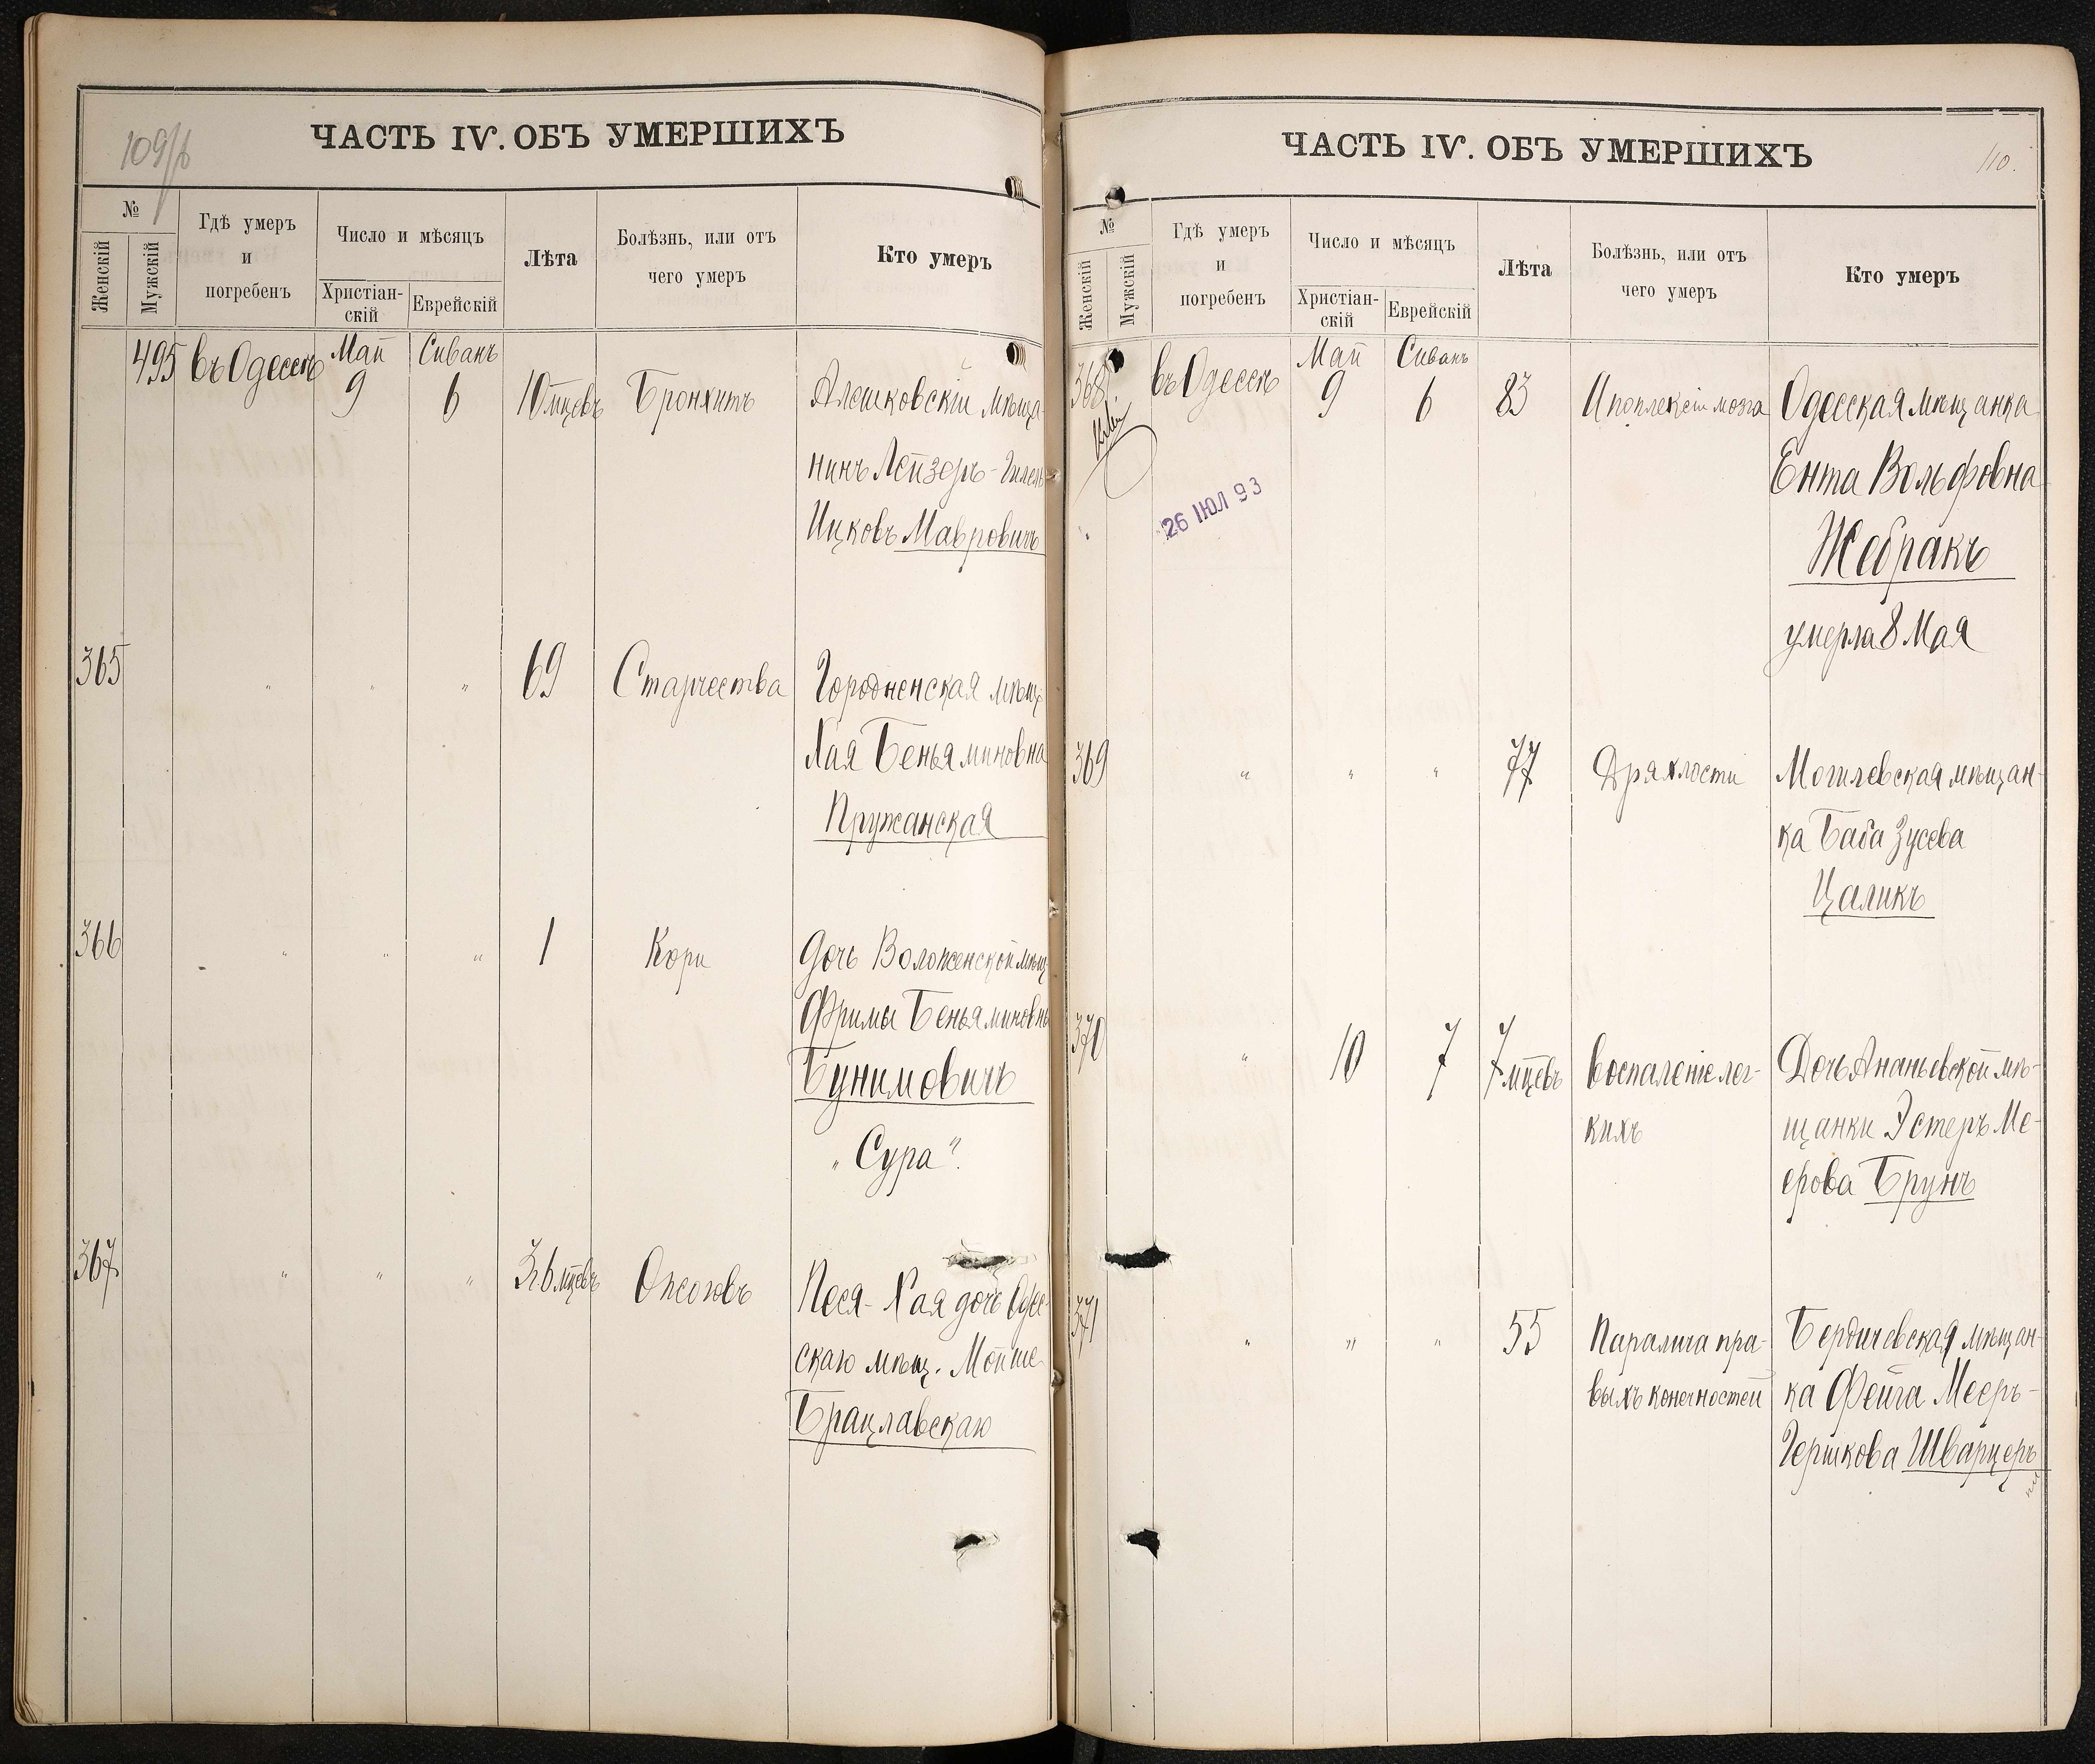 109/б
ЧАСТЬ IV. ОБЪ УМЕРШИХЪ
№
Женскій
Мужскій
Гдѣ умеръ
и
погребенъ
Число и мѣсяцъ
Христіан-
скій
Еврейскій
Лѣта
Болѣзнь, или отъ
чего умеръ
Кто умеръ
495 въ Одессѣ Май 9 Сиванъ 6 10 мцевъ Бронхитъ Алешковскій мѣща-
нинъ Лейзеръ-Гилель
Ицковъ Мавровичъ
365 " " " 69 Старчества Городненская мѣщ
Хая Беньяминовна
Пружанская
366 " " " 1 Кори Дочь Воложенской мѣщ
Фримы Беньяминовны
Бунимовичъ
„Сура“.
367 " " " 3 6 мцевъ Ожоговъ Песя-Хая дочь Одес-
скаго мѣщ. Мойше
Брацлавскаго
ЧАСТЬ IV. ОБЪ УМЕРШИХЪ
110.
№
Женскій
Мужскій
Гдѣ умеръ
и
погребенъ
Число и мѣсяцъ
Христіан-
скій
Еврейскій
Лѣта
Болѣзнь, или отъ
чего умеръ
Кто умеръ
368 въ Одессѣ Май 9 Сиванъ 6 83 Апоплексіи мозга Одесская мѣщанка
Ента Вольфовна
26 ІЮЛ 93
Жебракъ
умерла 8 Мая
369 " " " 77 Дряхлости Могилевская мѣщан-
ка Баба Зусева
Цаликъ
370 " 10 7 7 мцевъ Воспаленіе лег- Дочь Ананьевской мѣ-
кихъ щанки Эстеръ Ме-
ерова Брунъ
371 " " " 55 Паралича пра- Бердичевская мѣщан-
выхъ конечностей ка Фейга Мееръ-
Гершкова Шварцеръ